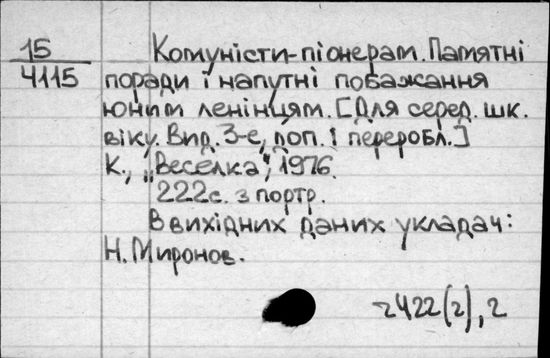 15
4115
Комуністи-піонерам. Памятні
поради і напутні побажання
юним ленінцям. [Для серед. шк.
віку. Вид. 3-е, доп. і переробл.]
К., „Веселка", 1976.
222с. з портр.
В вихідних даних укладач:
Н. Миронов.
2422(2), 2